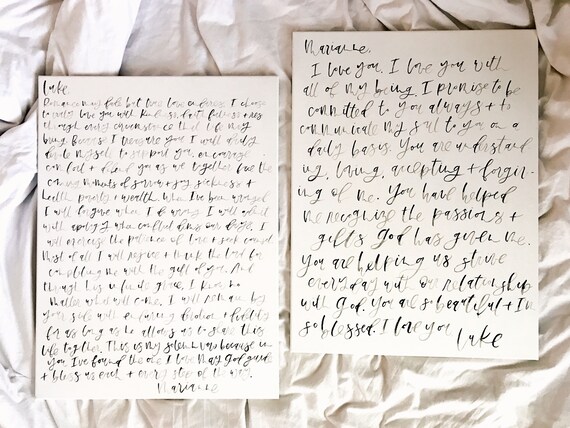 Luke,
Romance may fade but true love endures. I choose
to love you with kindness,
through every circumstance that life may
bring. Because I treasure you I will daily
myself to support you, encourage
comfort + defend you as we together face the
moments of sorrow + joy, sickness +
health, poverty + wealth. When I've been wronged
I will forgive. When I do wrong I will admit
with apology. When our I
will exercise the patience of love + seek
Most of all I will rejoice + thank the Lord for
completing me with the gift of you. And
though his grace, I know no
matter what will come, I will remain by
your side with devotion + fidelity
for as long as he allows us to share this
life together. This is my solemn vow because in
you I've found the one I love. May God guide
+ bless us each + every step of the way.
Marianne
Marianne,
I love you. I love you with
all of my being. I promise to be
committed to you always + to
communicate my self to you on a
daily basis. You are understand
ing, loving, accepting + forgiv-
ing of me. You have helped
me recognize the passions +
gifts God has given me.
You are helping us strive
everyday with our relationship
with God. You are so beautiful + I'm
so blessed. I love you
Luke